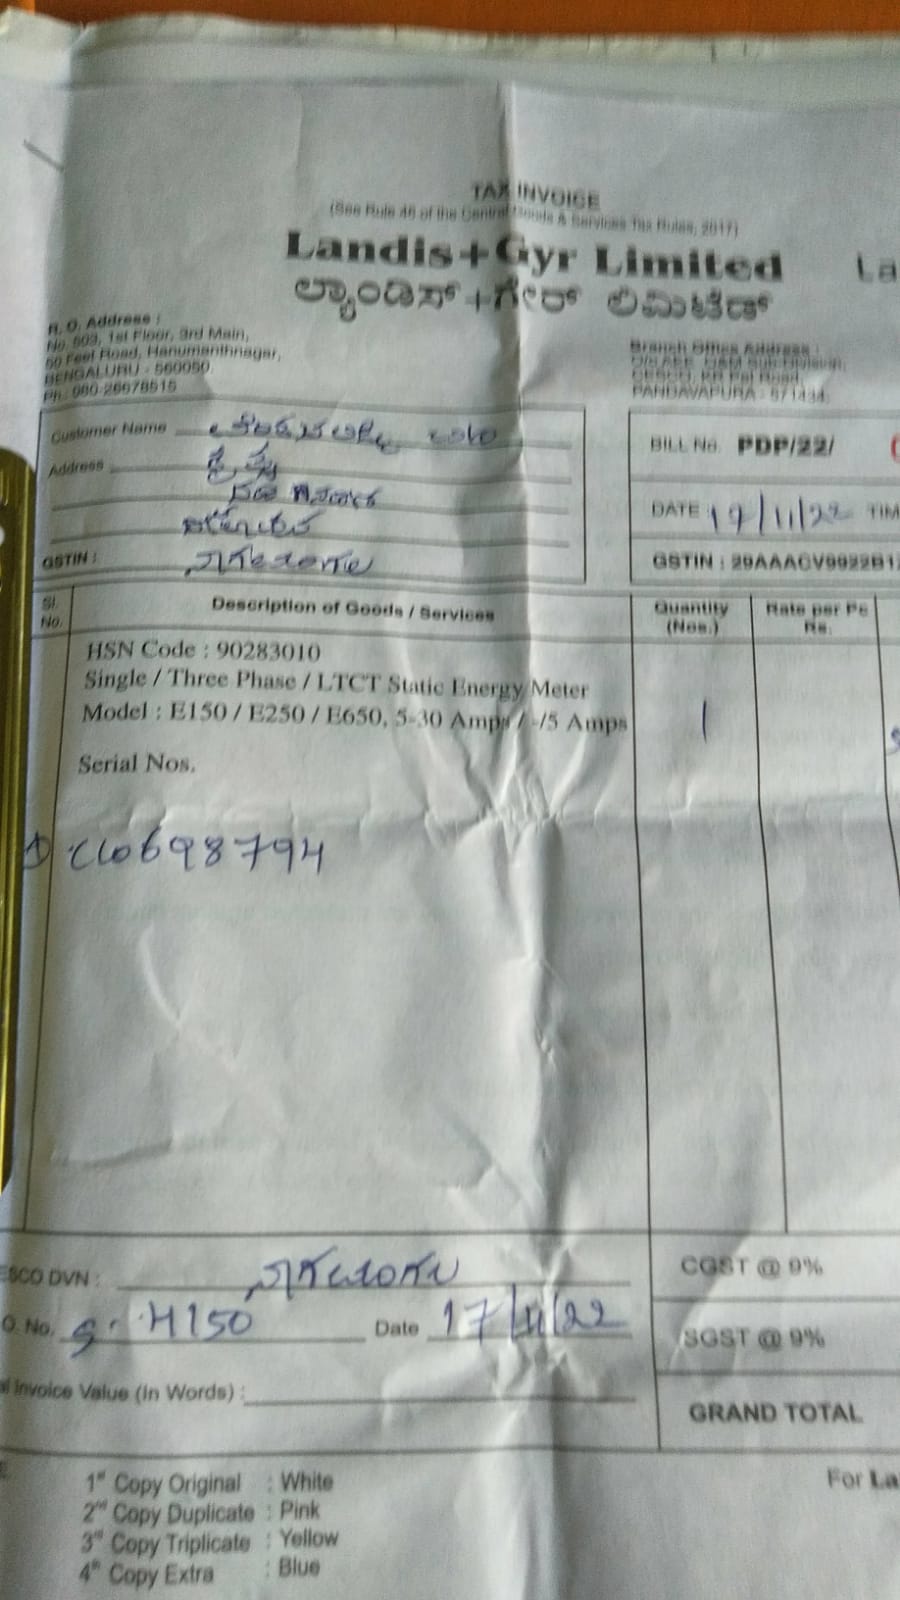 TAX INVOICE
(See Rule 46 of the Central Goods & Services Tax Rules, 2017)
Landis+Gyr Limited
La
ಲ್ಯಾಂಡಿಸ್+ಗೇರ್ ಲಿಮಿಟೆಡ್
H. O. Address :
No. 503, 1st Floor, 3rd Main,
50 Feet Road, Hanumanthnagar,
BENGALURU - 560050.
Ph : 080-26678515
Branch Office Address :
O/o AEE, O&M Sub-Division,
CESCO, KR Pet Road,
PANDAVAPURA - 571434.
Customer Name
Address
GSTIN :
ನಾಗಮಂಗಲ
BILL No. PDP/22/
DATE 17/11/22 TIM
GSTIN : 29AAACV9922B1
Sl. No.
Description of Goods / Services
Quantity (Nos.)
Rate per Pc Rs.
HSN Code : 90283010
Single / Three Phase / LTCT Static Energy Meter
Model : E150 / E250 / E650, 5-30 Amps / -/5 Amps
1
Serial Nos.
1) 698794
ESCO DVN : ನಾಗಮಂಗಲ
CGST @ 9%
O. No. H150 Date 17/11/22
SGST @ 9%
al Invoice Value (In Words) :
GRAND TOTAL
1st Copy Original : White
For La
2nd Copy Duplicate : Pink
3rd Copy Triplicate : Yellow
4th Copy Extra : Blue